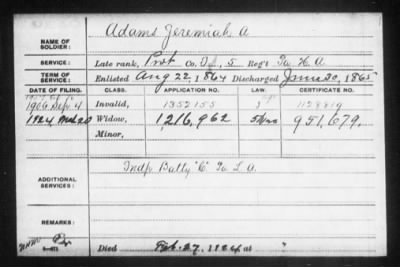 NAME OF SOLDIER: Adams Jeremiah A
SERVICE: Late rank, Pvt Co. I, 5 Reg't Pa H A
TERM OF SERVICE: Enlisted Aug 22, 1864 Discharged June 30, 1865
DATE OF FILING. CLASS. APPLICATION NO. LAW. CERTIFICATE NO.
1906 Sep 4 Invalid, 1352155 1128819
1924 Widow, 1,216,962 951,679.
Minor,
ADDITIONAL SERVICES: Indp Batty "C" Pa L. A.
REMARKS:
Died Feb. 27, 1924 at "